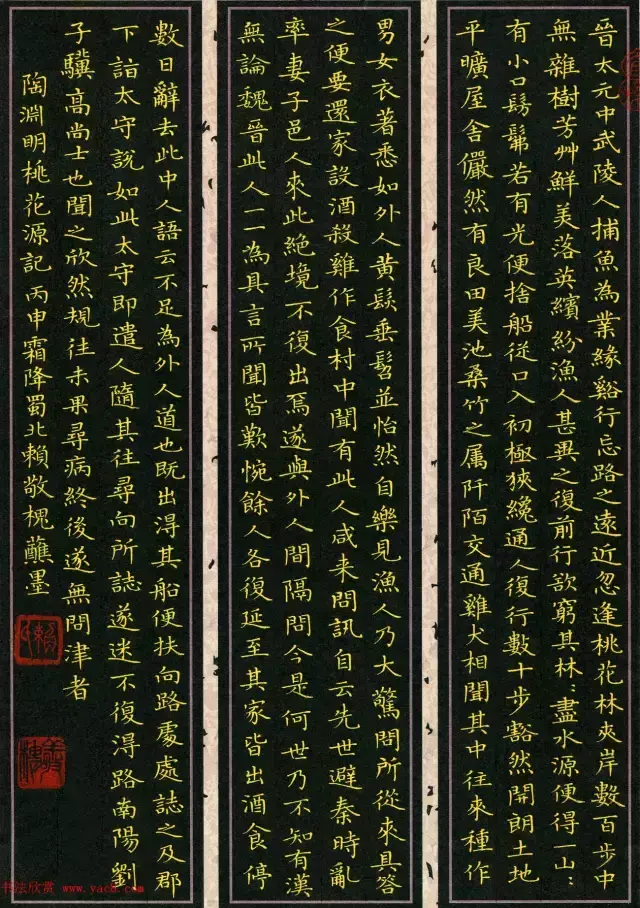 晉太元中武陵人捕魚為業緣谿行忘路之遠近忽逢桃花林夾岸數百步中
無雜樹芳艸鮮美落英繽紛漁人甚異之復前行欲窮其林〻盡水源便得一山〻
有小口髣髴若有光便捨船從口入初極狹纔通人復行數十步豁然開朗土地
平曠屋舍儼然有良田美池桑竹之属阡陌交通雞犬相聞其中往來種作
男女衣著悉如外人黄髮垂髫並怡然自樂見漁人乃大驚問所從來具答
之便要還家設酒殺雞作食村中聞有此人咸来問訊自云先世避秦時亂
率妻子邑人來此絶境不復出焉遂與外人間隔問今是何世乃不知有漢
無論魏晉此人一一為具言所聞皆歎惋餘人各復延至其家皆出酒食停
數日辭去此中人語云不足為外人道也既出得其船便扶向路處處誌之及郡
下詣太守説如此太守即遣人隨其往尋向所誌遂迷不復得路南陽劉
子驥高尚士也聞之欣然規往未果尋病終後遂無問津者
陶淵明桃花源記丙申霜降蜀北賴敬槐蘸墨
书法欣赏 www.yac8.com